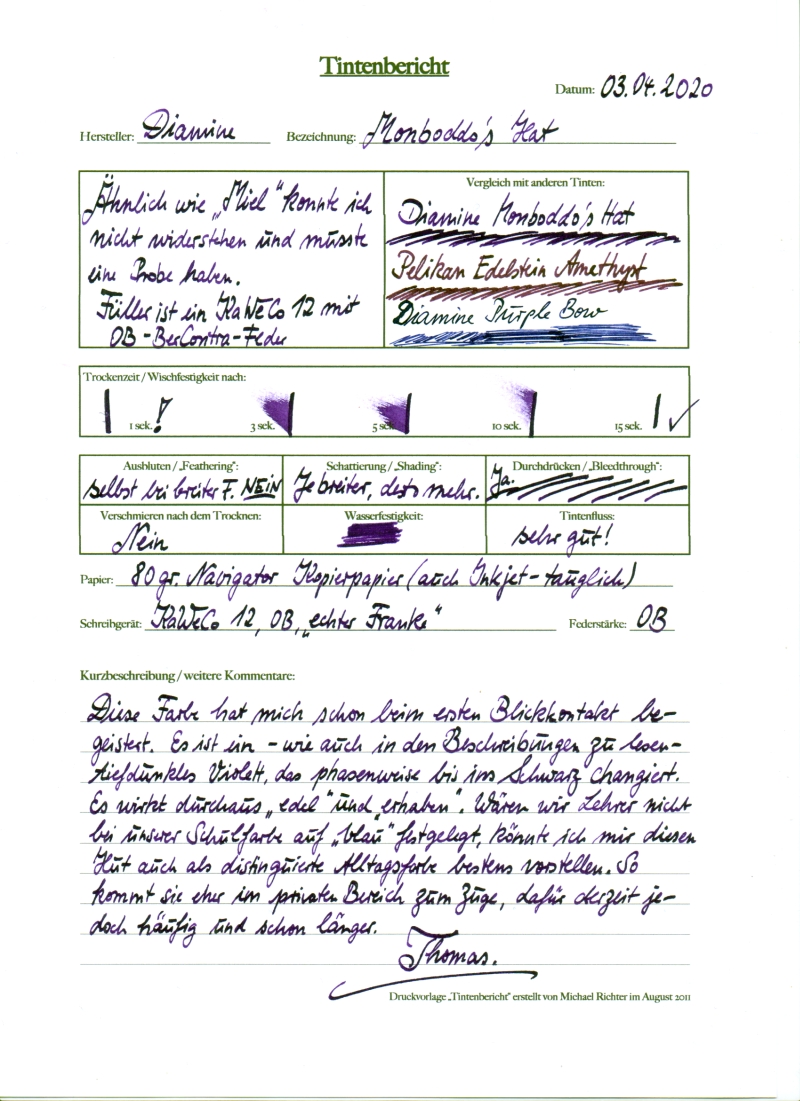 Tintenbericht
Datum: 03.04.2020
Hersteller: Diamine Bezeichnung: Monboddo's Hat
Ähnlich wie „Miel“ konnte ich
nicht widerstehen und musste
eine Probe haben.
Füller ist ein KaWeCo 12 mit
OB-BerContra-Feder
Vergleich mit anderen Tinten:
Diamine Monboddo's Hat
Pelikan Edelstein Amethyst
Diamine Purple Bow
Trockenzeit / Wischfestigkeit nach:
1 sek. ! 3 sek. 5 sek. 10 sek. 15 sek. ✓
Ausbluten / „Feathering“: Schattierung / „Shading“: Durchdrücken / „Bleedthrough“:
selbst bei breiter F. NEIN Je breiter, desto mehr. Ja.
Verschmieren nach dem Trocknen: Wasserfestigkeit: Tintenfluss:
Nein sehr gut!
Papier: 80 gr. Navigator Kopierpapier (auch Inkjet-tauglich)
Schreibgerät: KaWeCo 12, OB, „echter Franke“ Federstärke: OB
Kurzbeschreibung / weitere Kommentare:
Diese Farbe hat mich schon beim ersten Blickkontakt be-
geistert. Es ist ein - wie auch in den Beschreibungen zu lesen-
tiefdunkles Violett, das phasenweise bis ins Schwarz changiert.
Es wirkt durchaus „edel“ und „erhaben“. Wären wir Lehrer nicht
bei unserer Schulfarbe auf „blau“ festgelegt, könnte ich mir diesen
Hut auch als distinguierte Alltagsfarbe bestens vorstellen. So
kommt sie eher im privaten Bereich zum Zuge, dafür derzeit je-
doch häufig und schon länger.
Thomas.
Druckvorlage „Tintenbericht“ erstellt von Michael Richter im August 2011